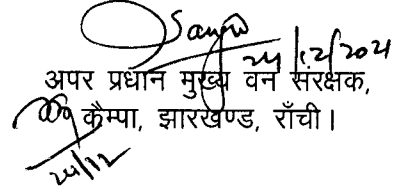 Sanjiv
24/12/2021
अपर प्रधान मुख्य वन संरक्षक,
कैम्पा, झारखण्ड, राँची।
24/12